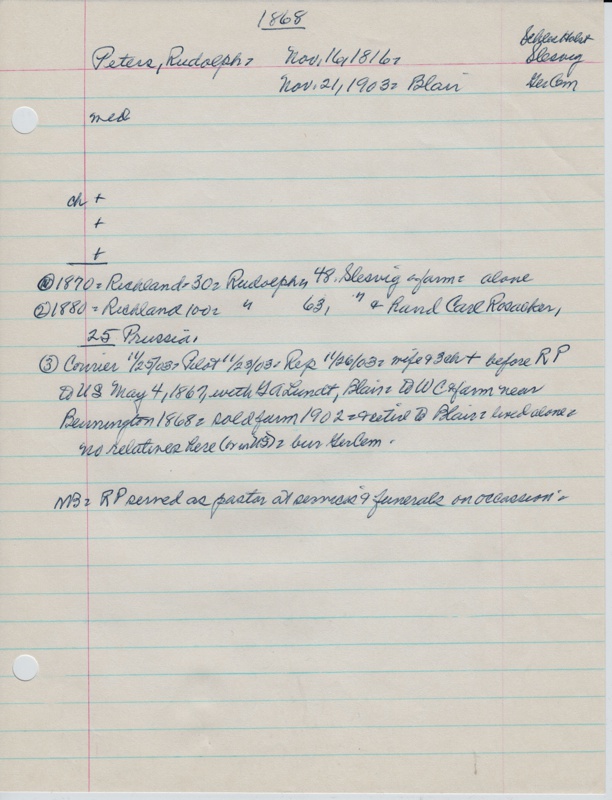 1868
Schles Holst
Peters, Rudolph = Nov. 16, 1816 = Slesvig
Nov. 21, 1903 = Blair GerCem
med
ch +
+
+
① 1870 = Richland = 30 = Rudolph, 48, Slesvig = farm = alone
② 1880 = Richland 100 = " 63, " & Hand Carl Rosacker,
25 Prussia.
③ Courier 11/25/03 = Pilot 11/25/03 = Rep 11/26/03 = wife & 3 ch + before RP
to US May 4, 1867, with GA Lundt, Blair = to WC & farm near
Bennington 1868 = sold farm 1902 = & retire to Blair = lived alone =
no relatives here = bur GerCem.
NB = RP served as pastor at services & funerals on occassion =